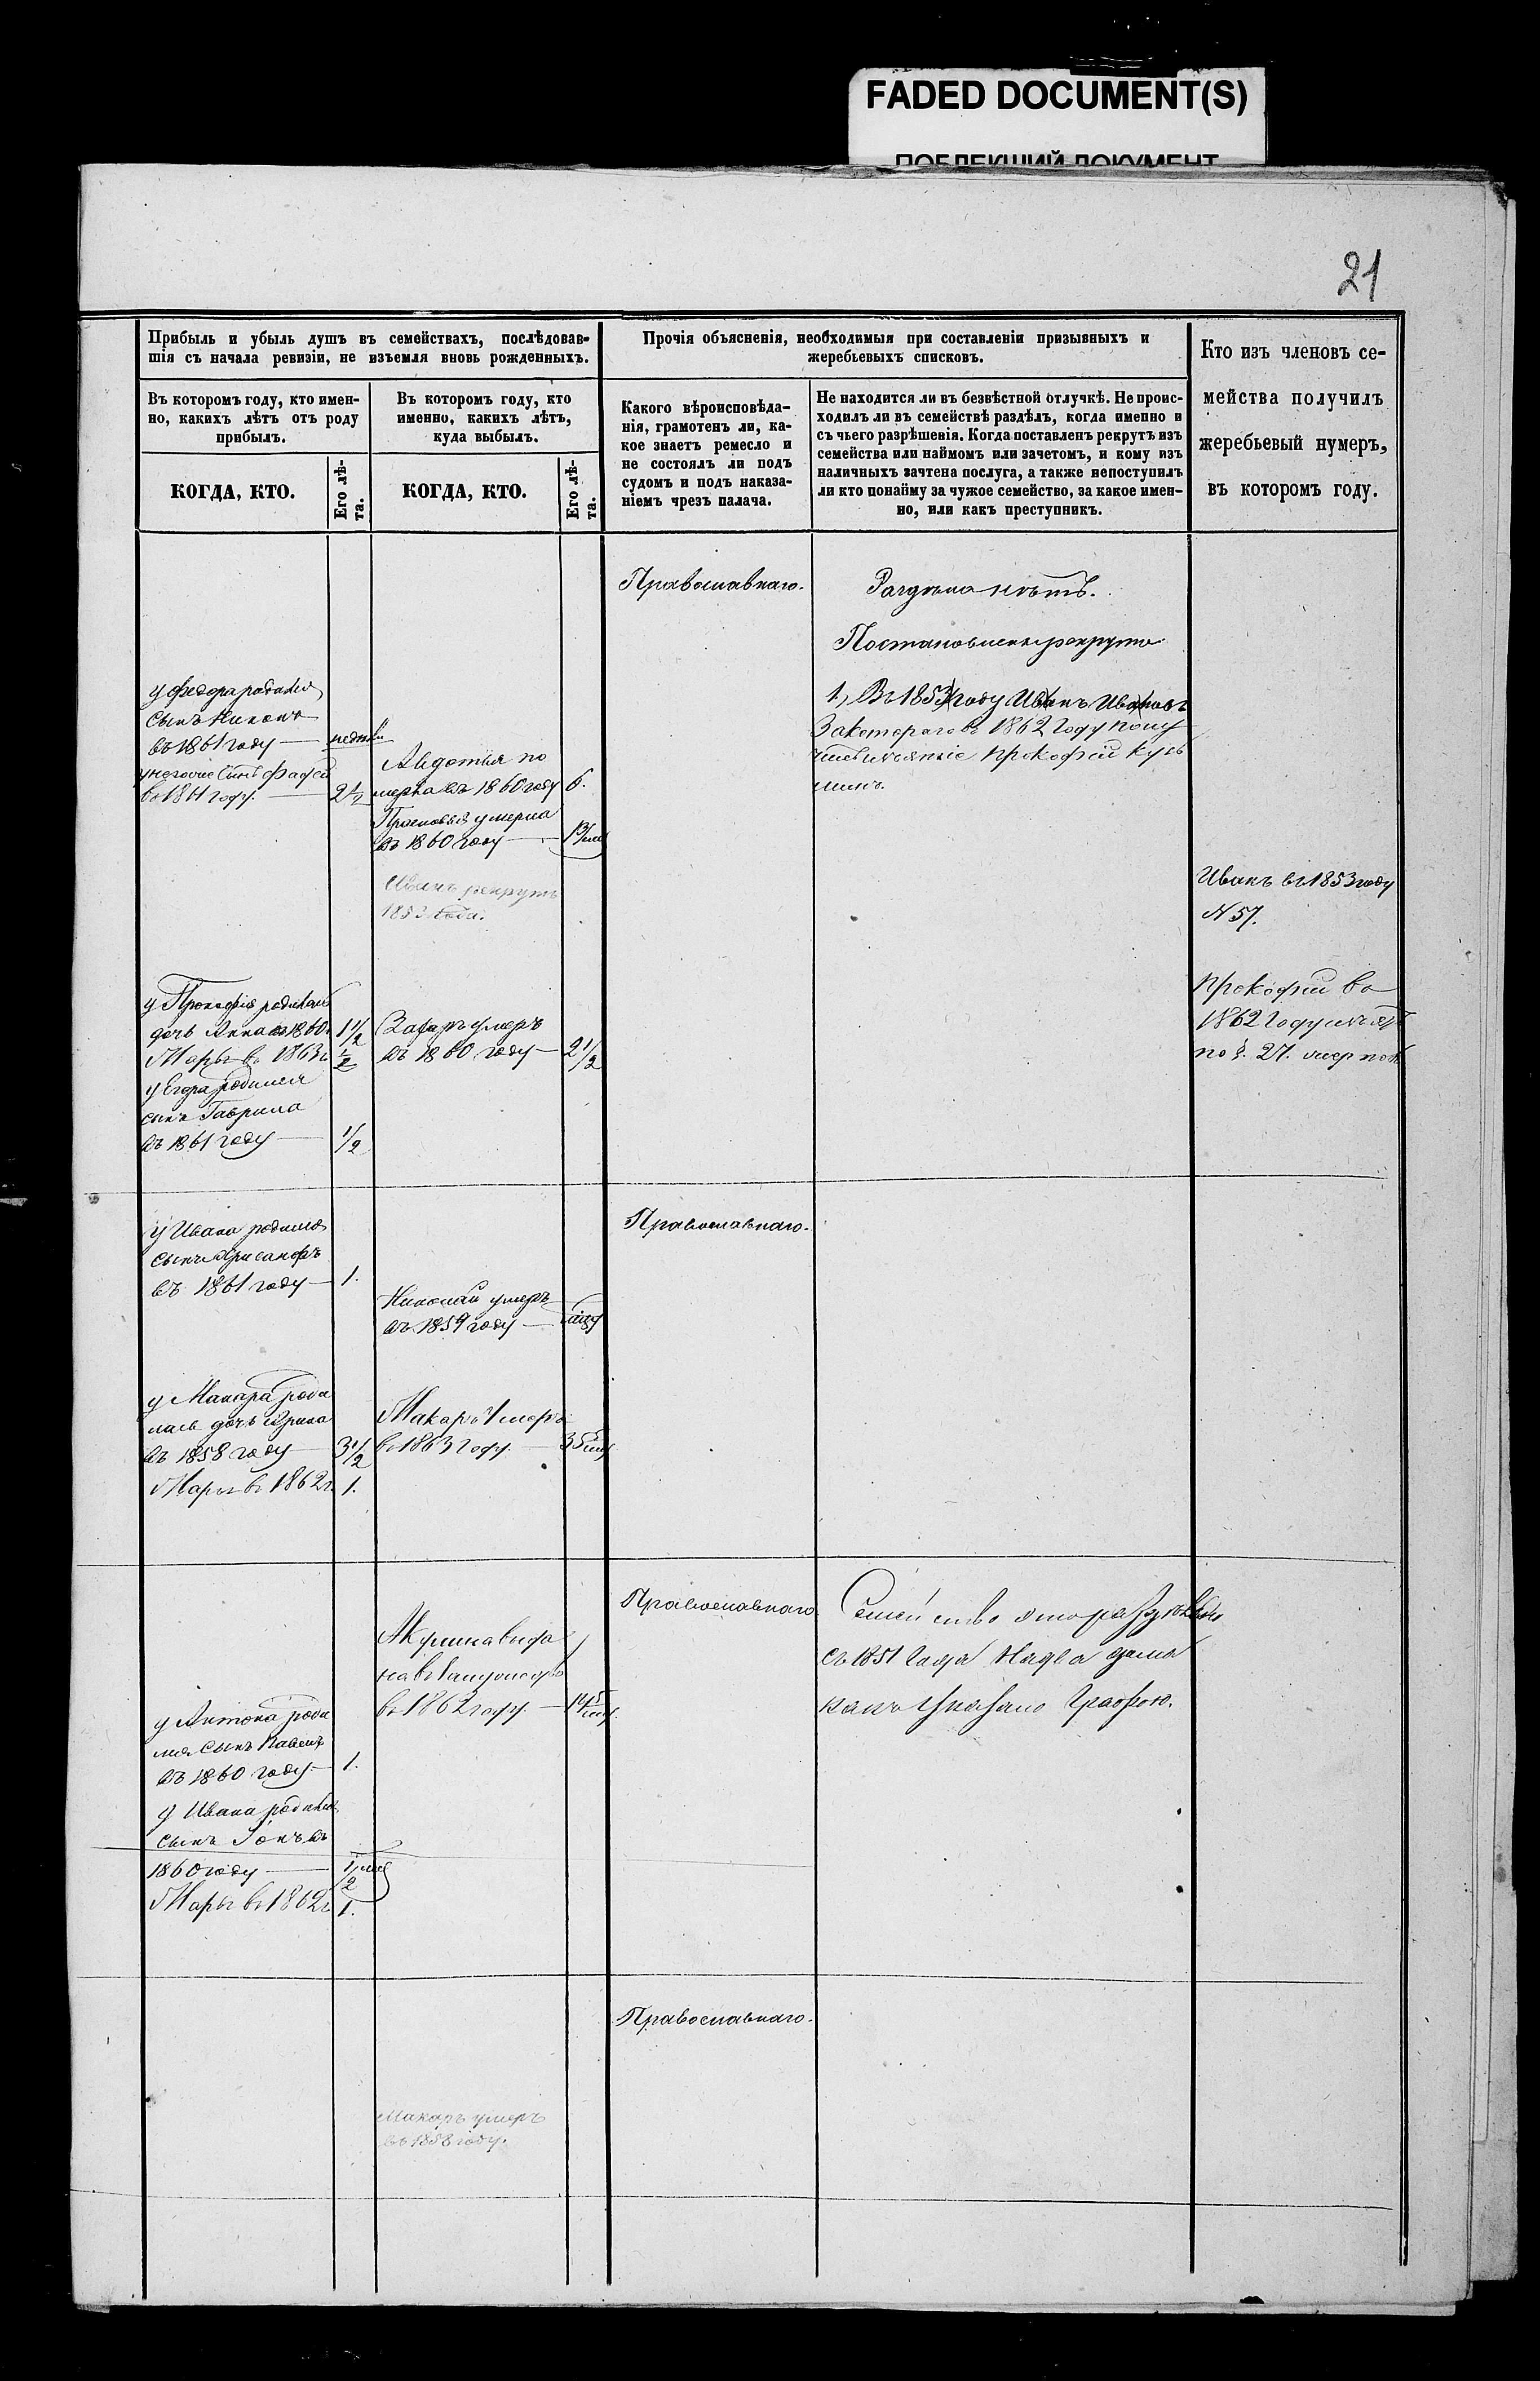 FADED DOCUMENT(S)
ПОБЛЕКШИЙ ДОКУМЕНТ
21
Прибыль и убыль душъ въ семействахъ, послѣдовав-
шія съ начала ревизіи, не изъемля вновь рожденныхъ.
Въ которомъ году, кто имен-
но, какихъ лѣтъ отъ роду
прибылъ.
КОГДА, КТО.
Его лѣ-
та.
Въ которомъ году, кто
именно, какихъ лѣтъ,
куда выбылъ.
КОГДА, КТО.
Его лѣ-
та.
Прочія объясненія, необходимыя при составленіи призывныхъ и
жеребьевыхъ списковъ.
Какого вѣроисповѣда-
нія, грамотенъ ли, ка-
кое знаетъ ремесло и
не состоялъ ли подъ
судомъ и подъ наказа-
ніемъ чрезъ палача.
Не находится ли въ безвѣстной отлучкѣ. Не проис-
ходилъ ли въ семействѣ раздѣлъ, когда именно и
съ чьего разрѣшенія. Когда поставленъ рекрутъ изъ
семейства или наймомъ или зачетомъ, и кому изъ
наличныхъ зачтена послуга, а также непоступилъ
ли кто понайму за чужое семейство, за какое имен-
но, или какъ преступникъ.
Кто изъ членовъ се-
мейства получилъ
жеребьевый нумеръ,
въ которомъ году.
Православнаго.
Раздѣла нѣтъ.
у Федора родился
сынъ
въ 1861 году
въ 1861 году.
2 1/2
Авдотья по
мерла въ 1860 году
6.
умерла
въ 1860 году
Иванъ рекрутъ
1853 года.
1, Въ 1853 году Иванъ Ивановъ
За котораго въ 1862 году
Прокофій
Иванъ въ 1853 году
N 57.
Прокофій въ
1862 году
по §. 27.
у Прокофія родилась
дочь Анна въ 1860 г
1 1/2
Марья въ 1863 г
1/2
у Егора родился
сынъ Гаврила
въ 1861 году
1/2
Захаръ умеръ
въ 1860 году
2 1/2
у Ивана родился
сынъ Хрисанфъ
въ 1861 году
1.
Николай умеръ
въ 1859 году
Православнаго.
у Макара роди
лась дочь Арина
въ 1858 году
3 1/2
Марья въ 1862 г.
1.
Макаръ умеръ
въ 1863 году.
Православнаго
Семейство это раздѣлено
съ 1851 года на два дома
какъ указано графою.
Акулина выда
на въ замужество
въ 1862 году
у Антона роди
лся сынъ Павелъ
въ 1860 году
1.
у Ивана родился
сынъ Іонъ въ
1860 году
1/2
Марья въ 1862 г
1.
Православнаго.
Макаръ умеръ
въ 1858 году.